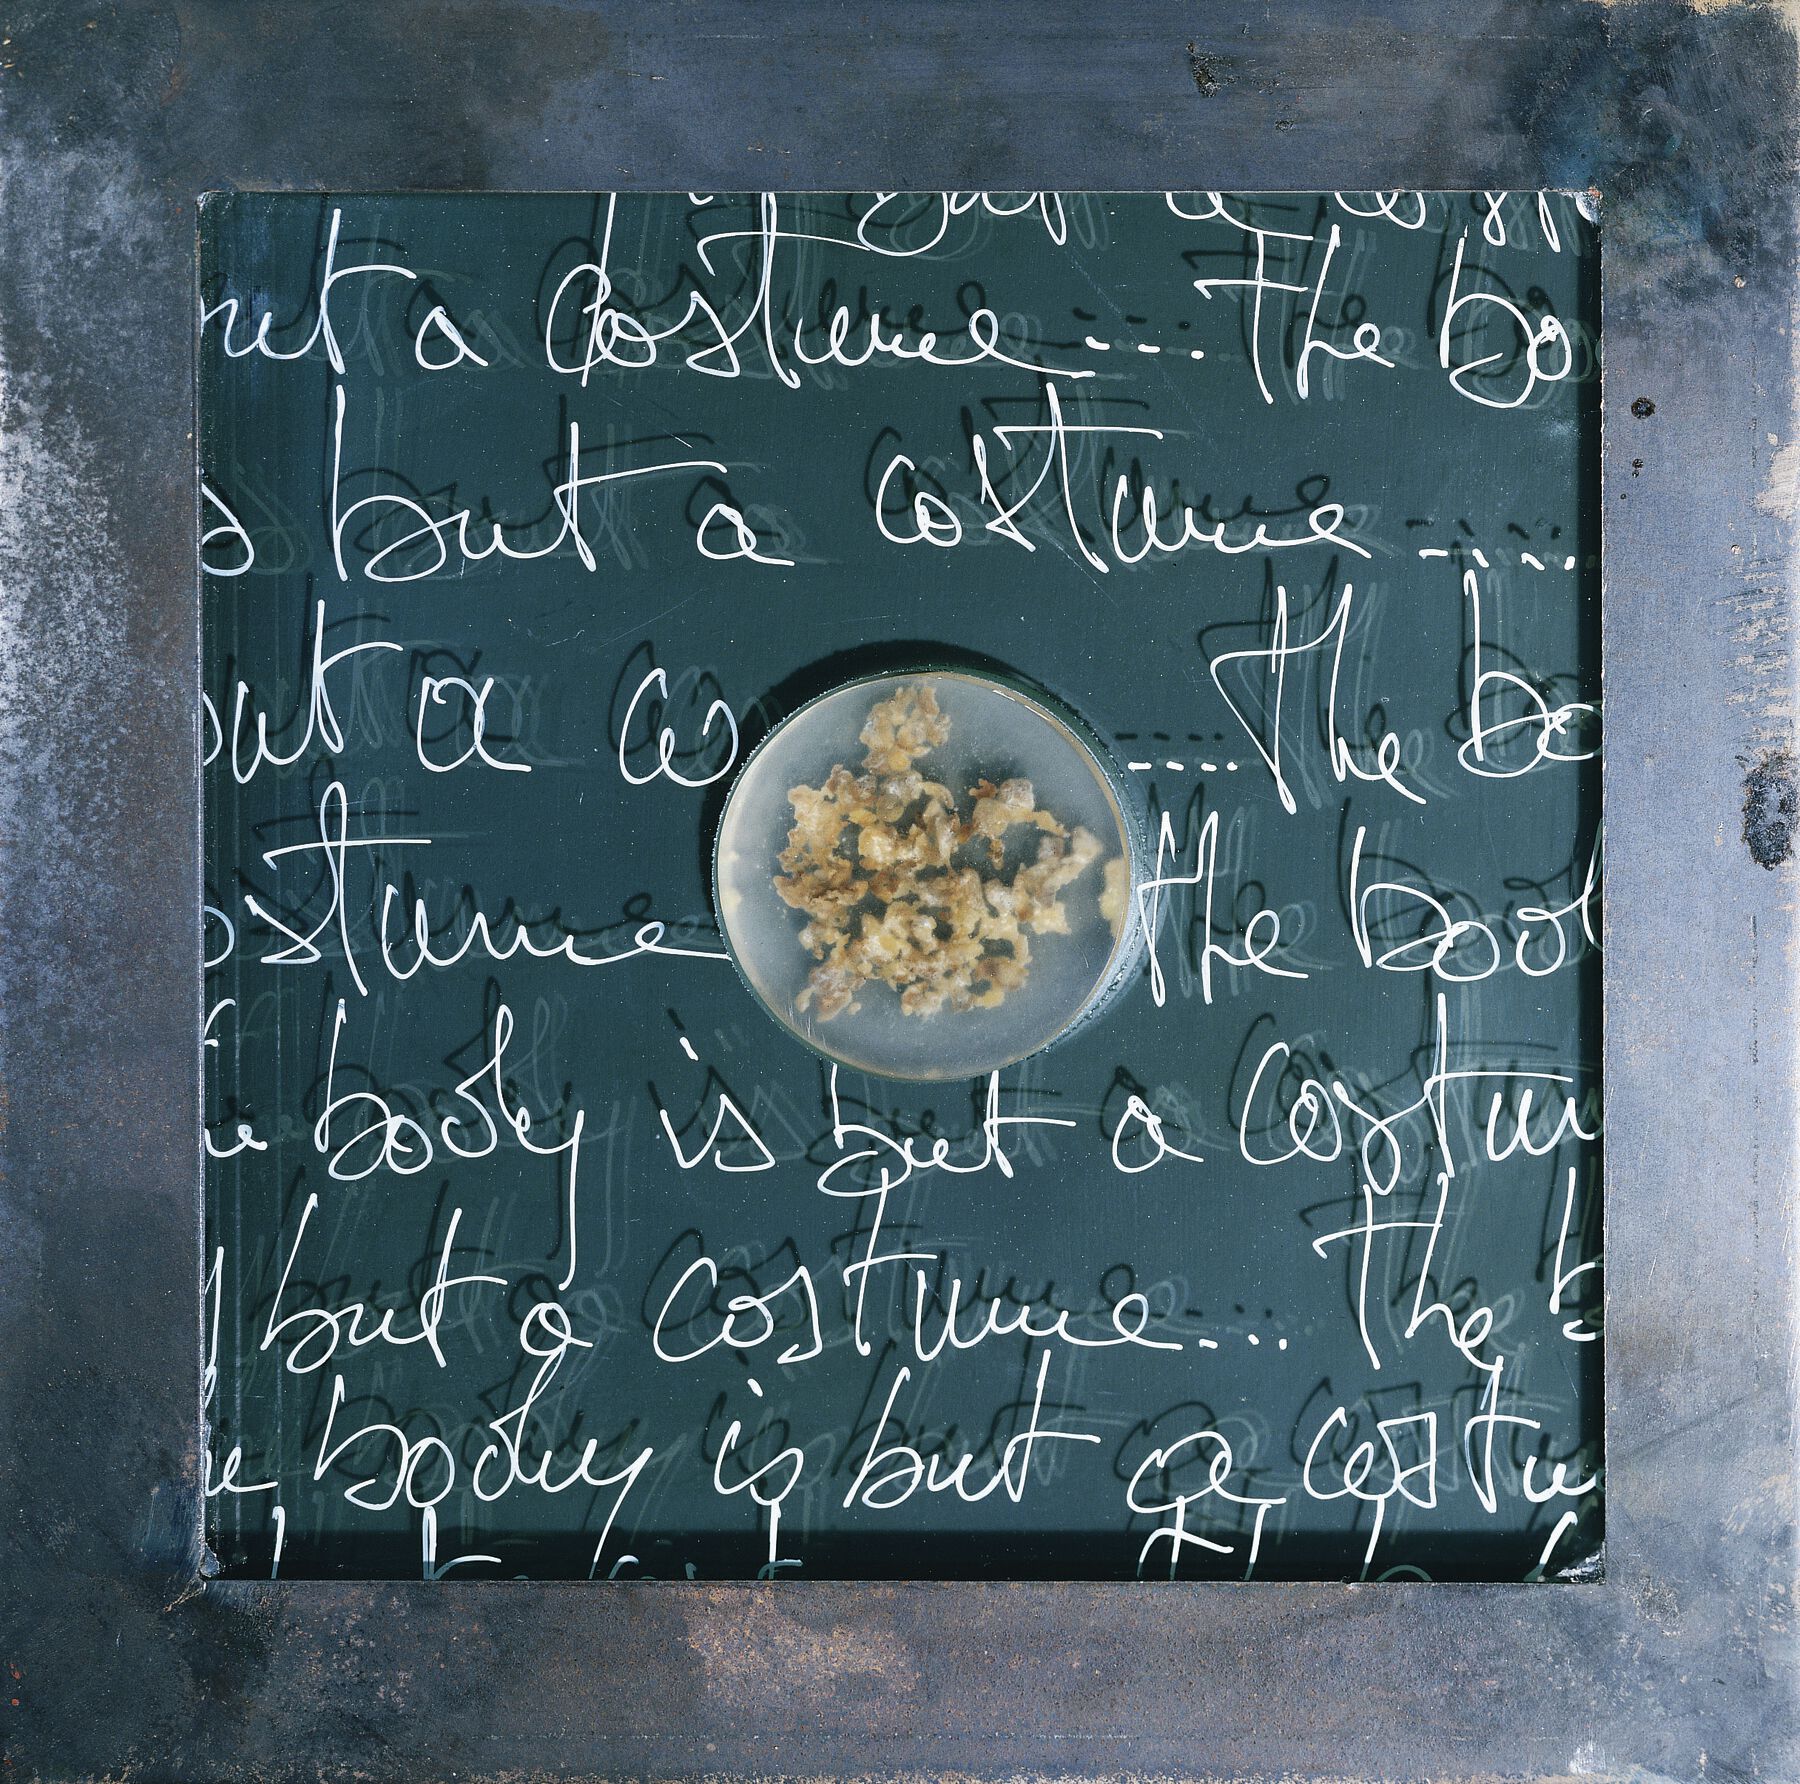 but a costume .... The bo
s but a costume ......
but a co ..... The bo
ostume The bod
e body is but a costum
but a costume .... The b
he body is but a costu